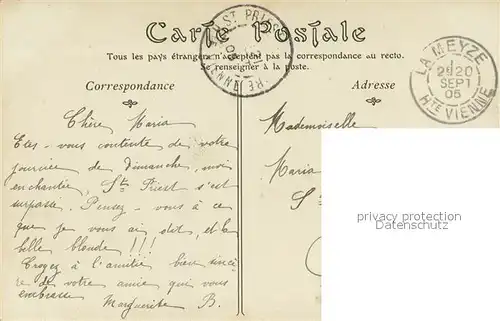 Carte Postale
Tous les pays étrangers n'acceptent pas la correspondance au recto.
Se renseigner à la poste.
Correspondance
Adresse
ST PRIEST
HTE VIENNE
LA MEYZE
2920
SEPT
05
HTE VIENNE
Chère Maria
Etes-vous contente de votre
journée de Dimanche, moi
enchantée, St Priest s'est
surpassé. Pensez-vous à ce
que je vous ai dit, et la
belle blonde !!!
Croyez à l'amitié bien sincè
re de votre amie qui vous
embrasse
Marguerite B.
Mademoiselle
Maria
S
privacy protection
Datenschutz